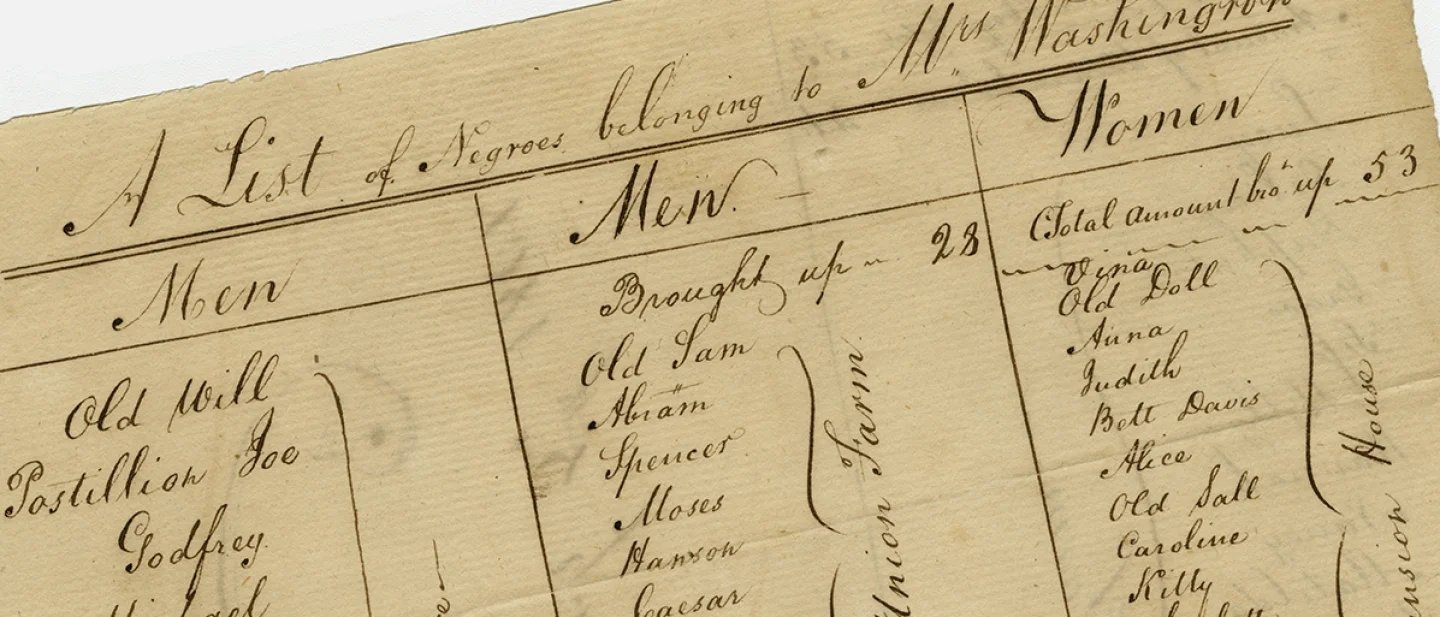 A List of Negroes belonging to Mrs Washington
Men
Old Will
Postillion Joe
Godfrey
Michael
Men.
Brought up 28
Old Sam
Abram
Spencer
Moses
Hanson
Caesar
Union Farm
Women
Total amount bro up 53
Vina
Old Doll
Anna
Judith
Bett Davis
Alice
Old Sall
Caroline
Kitty
House